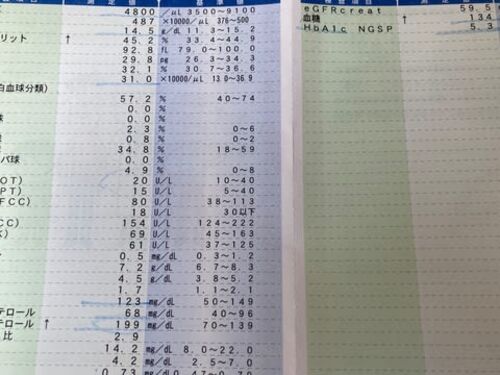 測定値 基準値
4800 /μL 3500~9100
487 ×10000/μL 376~500
14.5 g/dL 11.3~15.2
リット ↑ 45.2 % 33.4~44.9
92.8 fL 79.0~100.0
29.8 pg 26.3~34.3
32.1 % 30.7~36.6
31.0 ×10000/μL 13.0~36.9
白血球分類)
57.2 % 40~74
0.0 %
球 0.0 %
2.3 % 0~6
0.8 % 0~2
34.8 % 18~59
パ球 0.0 %
4.9 % 0~8
OT) 20 U/L 10~40
PT) 15 U/L 5~40
FCC) 80 U/L 38~113
18 U/L 30以下
CC) 154 U/L 124~222
K) 69 U/L 45~163
61 U/L 37~125
0.5 mg/dL 0.3~1.2
7.2 g/dL 6.7~8.3
4.5 g/dL 3.8~5.2
1.7 1.1~2.1
123 mg/dL 50~149
テロール 68 mg/dL 40~96
テロール ↑ 199 mg/dL 70~139
比 2.9
14.2 mg/dL 8.0~22.0
4.2 mg/dL 2.5~7.0
0.73 mg/dL
検査項目
eGFRcreat 59.5
血糖 ↑ 134
HbA1c NGSP 5.3